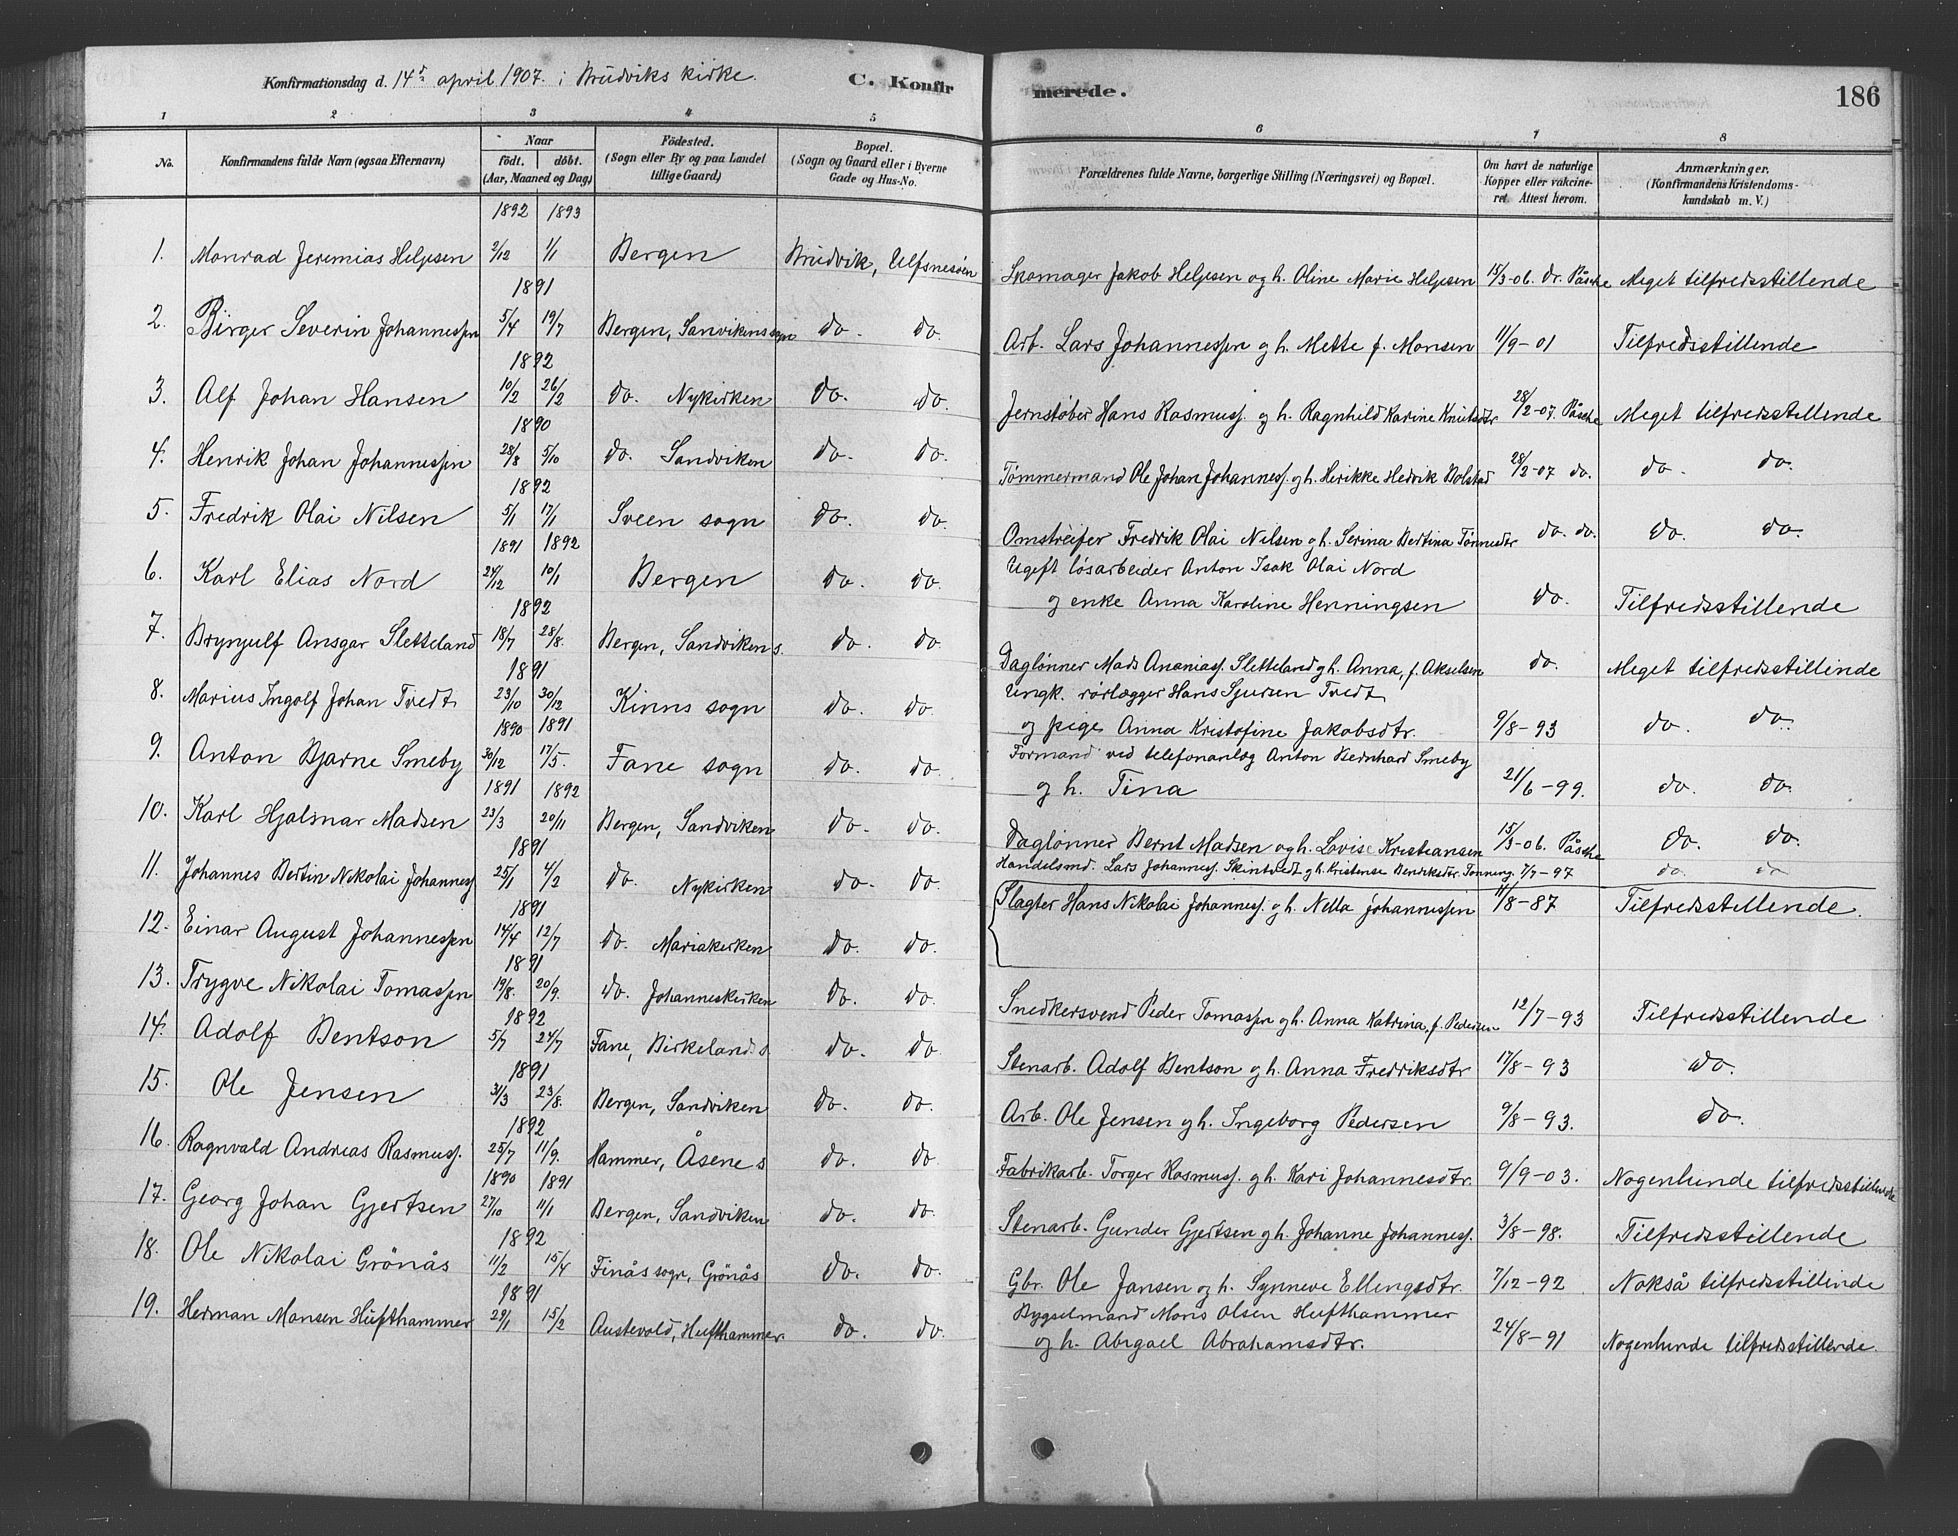 Konfirmationsdag d. 14de april 1907. i Brudviks kirke. C. Konfir
merede. 186
1 2 3 4 5
6 7 8
No. Konfirmandens fulde Navn (ogsaa Efternavn) Naar födt. döbt. (Aar, Maaned og Dag) Födested. (Sogn eller By og paa Landet tillige Gaard) Bopæl. (Sogn og Gaard eller i Byerne Gade og Hus-No.
Forældrenes fulde Navne, borgerlige Stilling (Næringsvei) og Bopæl. Om havt de naturlige Kopper eller vakcineret. Attest herom. Anmærkninger. (Konfirmandens Kristendomskundskab m. V.)
1892 1893
1. Monrad Jeremias Heljesen 2/12 1/1 Bergen Brudvik, Ulfsnesöen
Skomager Jakob Heljesen og h. Oline Marie Heljesen 15/3-06. dr. Påsche Meget tilfredsstillende
1891
2. Birger Severin Johannessen 5/4 19/7 Bergen, Sanvikens sogn do. do.
Arb. Lars Johannessen og h. Mette f. Monsen 11/9-01 Tilfredsstillende
1892
3. Alf Johan Hansen 10/2 26/2 do. Nykirken do. do.
Jernstøber Hans Rasmuss. og h. Ragnhild Karine Knutsdtr 28/2-07. Påsche Meget tilfredsstillende
1890
4. Henrik Johan Johannessen 28/8 5/10 do. Sandviken do. do.
Tömmermand Ole Johan Johanness. og h. Herikke Hedvik Bolstad 28/2-07 do. do. do.
1892
5. Fredrik Olai Nilsen 5/1 17/1 Sveen sogn do. do.
Omstreifer Fredrik Olai Nilsen og h. Serina Bertina Tönnesdtr do. do. do. do.
1891 1892
6. Karl Elias Nord 24/12 10/1 Bergen do. do.
Ugift løsarbeider Anton Isak Olai Nord
og enke Anna Karoline Henningsen do. Tilfredsstillende
1892
7. Brynjulf Ansgar Sletteland 18/7 28/8. Bergen, Sandviken s. do. do.
Daglønner Mads Ananiass. Sletteland og h. Anna, f. Akselsen do. Meget tilfredsstillende
1891
8. Marius Ingolf Johan Tvedt 23/10 30/12 Kinns sogn do. do.
Ungk. rørlægger Hans Sjursen Tvedt
og pige Anna Kristofine Jakobsdtr. 9/8-93 do. do.
1890 1891
9. Anton Bjarne Smeby 30/12 17/5. Fane sogn do. do.
Formand ved telefonanlæg Anton Bernhard Smeby
og h. Tina 21/6-99. do. do.
1891 1892
10. Karl Hjalmar Madsen 23/3 20/11 Bergen, Sandviken do. do.
Daglønner Bernt Madsen og h. Lovise Kristiansen 15/3-06. Påsche do. do.
1891
11. Johannes Bertin Nikolai Johanness 25/1 4/2 do. Nykirken do. do.
Handelsmd. Lars Johanness. Skintvedt og h. Kristense Bendiksdtr. Tonning 7/7-97 do. do.
1891
12. Einar August Johannessen 14/4 12/7 do. Mariakirken do. do.
Slagter Hans Nikolai Johanness. og h. Nella Johannessen 11/8-87 Tilfredsstillende.
1891
13. Trygve Nikolai Tomassen 19/8. 20/9. do. Johanneskirken do. do.
Snedkersvend Peder Tomassen og h. Anna Katrina, f. Pedersen 12/7-93 Tilfredsstillende
1892
14. Adolf Bentson 5/7 24/7 Fane, Birkeland s. do. do.
Stenarb. Adolf Bentson og h. Anna Fredriksdtr 17/8-93 do.
1891
15. Ole Jensen 31/3 23/8. Bergen, Sandviken do. do.
Arb. Ole Jensen og h. Ingeborg Pedersen 9/8-93. do.
1892
16. Ragnvald Andreas Rasmuss. 25/7 11/9. Hammer, Åsene s do. do
Fabrikarb. Torger Rasmuss. og h. Kari Johannesdtr. 9/9-03. Nogenlunde tilfredsstillende
1890 1891
17. Georg Johan Gjertsen 27/10 11/1 Bergen, Sandviken do. do.
Stenarb. Gunder Gjertsen og h. Johanne Johanness. 3/8-98. Tilfredsstillende
1892
18. Ole Nikolai Grönås 11/2 15/4 Finås sogn, Grönås do. do.
Gbr. Ole Jansen og h. Synneve Ellingsdtr. 7/12-92 Nokså tilfredsstillinde
1891
19. Herman Monsen Hufthammer 29/1 15/2 Austevold, Hufthammer do. do.
Bygselmand Mons Olsen Hufthammer
og h. Abigael Abrahamsdtr. 24/8-91 Nogenlunde tilfredsstillende.